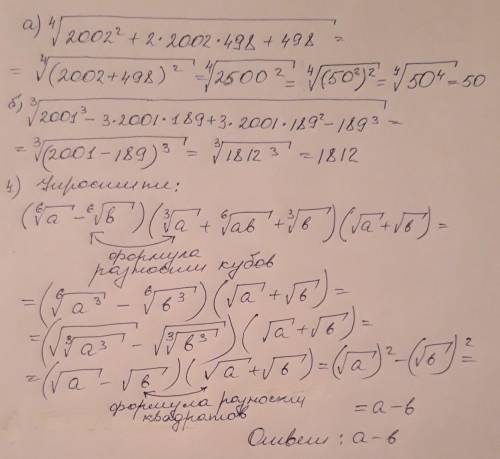 а) ⁴√(2002² + 2·2002·498 + 498) =
= ⁴√((2002+498)²) = ⁴√(2500²) = ⁴√((50²)²) = ⁴√(50⁴) = 50
б) ³√(2001³ - 3·2001·189 + 3·2001·189² - 189³) =
= ³√((2001-189)³) = ³√(1812³) = 1812
4) Упростить:
(⁶√a - ⁶√b)(³√a + ⁶√ab + ³√b)(√a + √b) =
формула
разности кубов
= (⁶√a³ - ⁶√b³)(√a + √b) =
= (√(³√a³) - √(³√b³))(√a + √b) =
= (√a - √b)(√a + √b) = (√a)² - (√b)² =
формула разности
квадратов
= a - b
Ответ: a - b